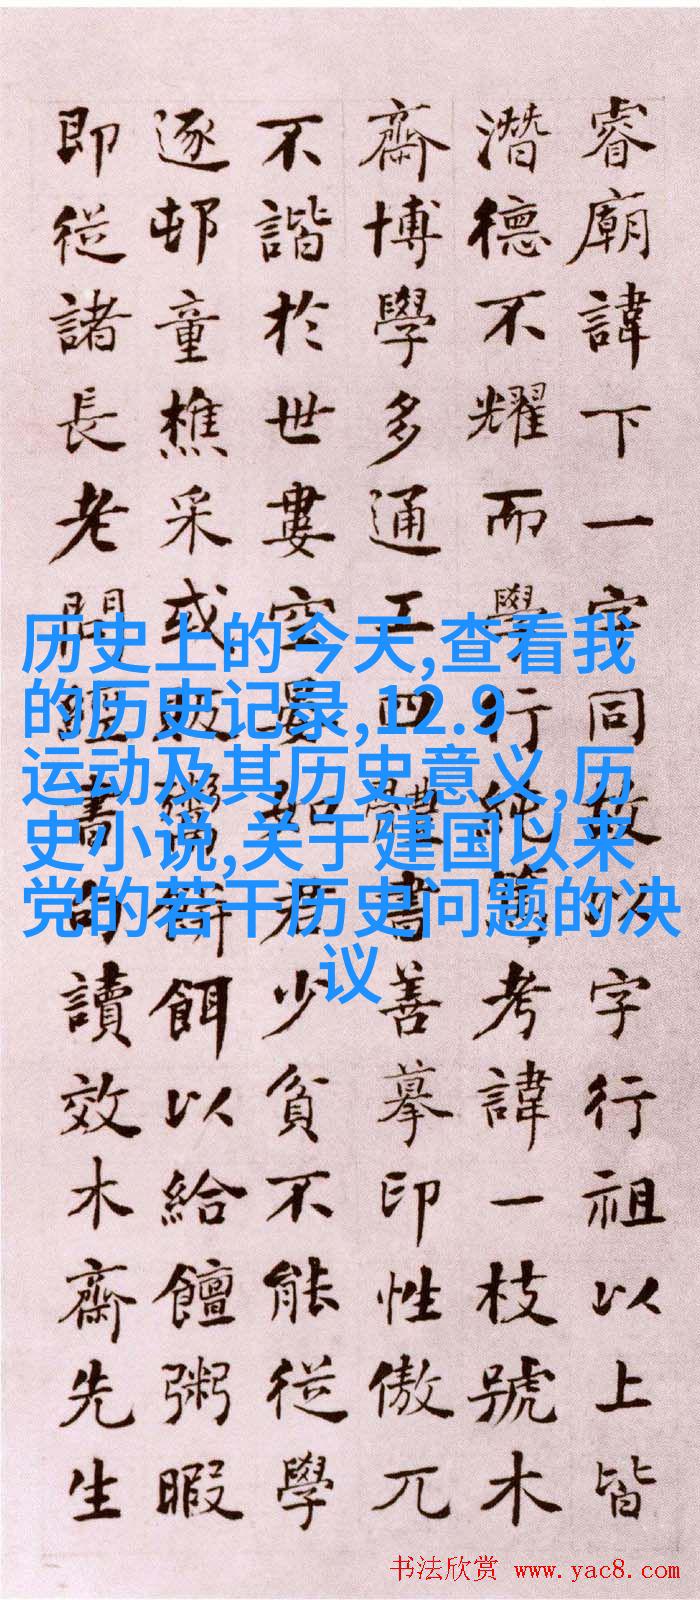 睿廟諱下一字同故以字行祖以上皆
潛德不耀而學行純篤考諱一枝號木
齋博學多通工四體書善摹印性傲兀
不諧於世婁空晏如君少貧不能從學
逐邨童樵采或販鬻餅餌以給饘粥暇
即從諸長老問經書句讀效木齋先生
历史上的今天,查看我
的历史记录,12.9
运动及其历史意义,历
史小说,关于建国以来
党的若干历史问题的决
议
书法欣赏 www.yac8.com